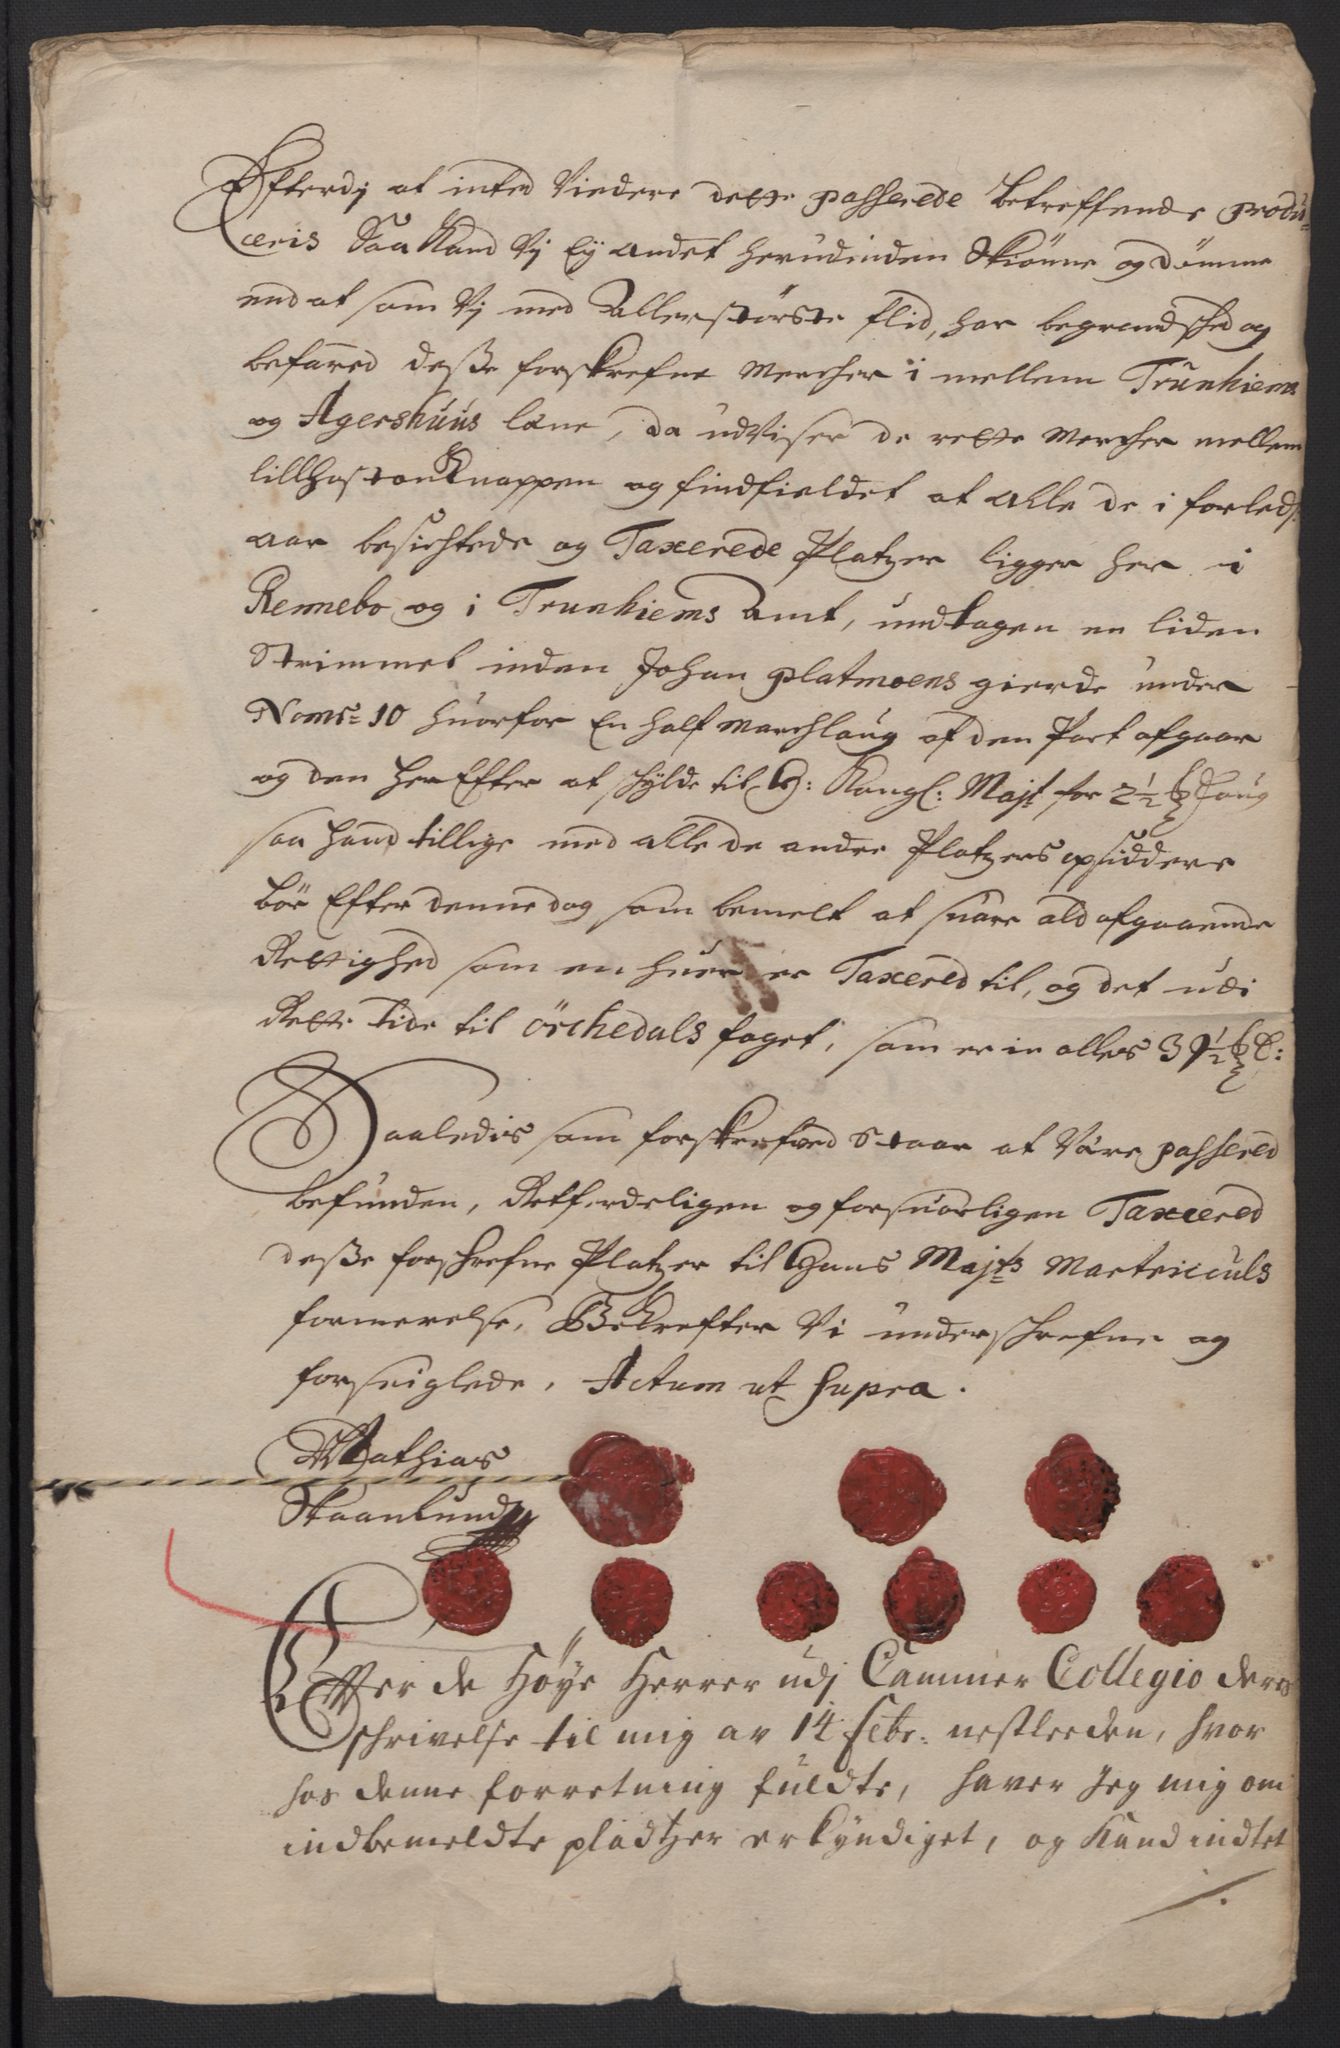 Efterdj at inted Viedere dette passerede Betreffende prodú=
ceris Saa Kand Vj Ey andet herudinden Skiönne og dömme
end at som Vj med Allerstörste flid, har begrandsched og
befared desse forskrefne Mercher i mellem Trúnhiems
og Agershúús læne, da udViser de rette Mercher mellem
lillhostonKnappen og findfieldet at alle de i forled:
aar besichtede og Taxerede Platzer ligger her i
Rennebo og i Trunhiems Amt, undtagen en liden
Strimmel inden Johan platmoens gierde under
Noms= 10 huorfor En half Marchlaug af den Part afgaar
og den her Efter at schylde til H: Kongl: Majt for 2½ laug
saa hand tillige med alle de andre Platzers opsiddere
bör Efter denne dag som bemelt at suare ald afgaaende
Rettighed som en huer er Taxered til, og det udi
Rette tide til örchedals foget, som er in alles 39½
Saaledis som forskrefved Staar at Være passered
befunden, Retferdeligen og forsuarligen Taxeered
desse forschrefne Platzer til Hans Majts Martriculs
formerelse, Bekrefter Vi underschrefne og
forseiglede, Actum ut supra.
Mathias
Skaanlund
Efter de Höye Herrer udj Cammer Collegio deres
schrivelse til mig av 14 febr: nestleeden, hvor
hos denne forretning fuldte, haver Jeg mig om
indbemeldte pladtzer erkyndiget, og Kand indtet